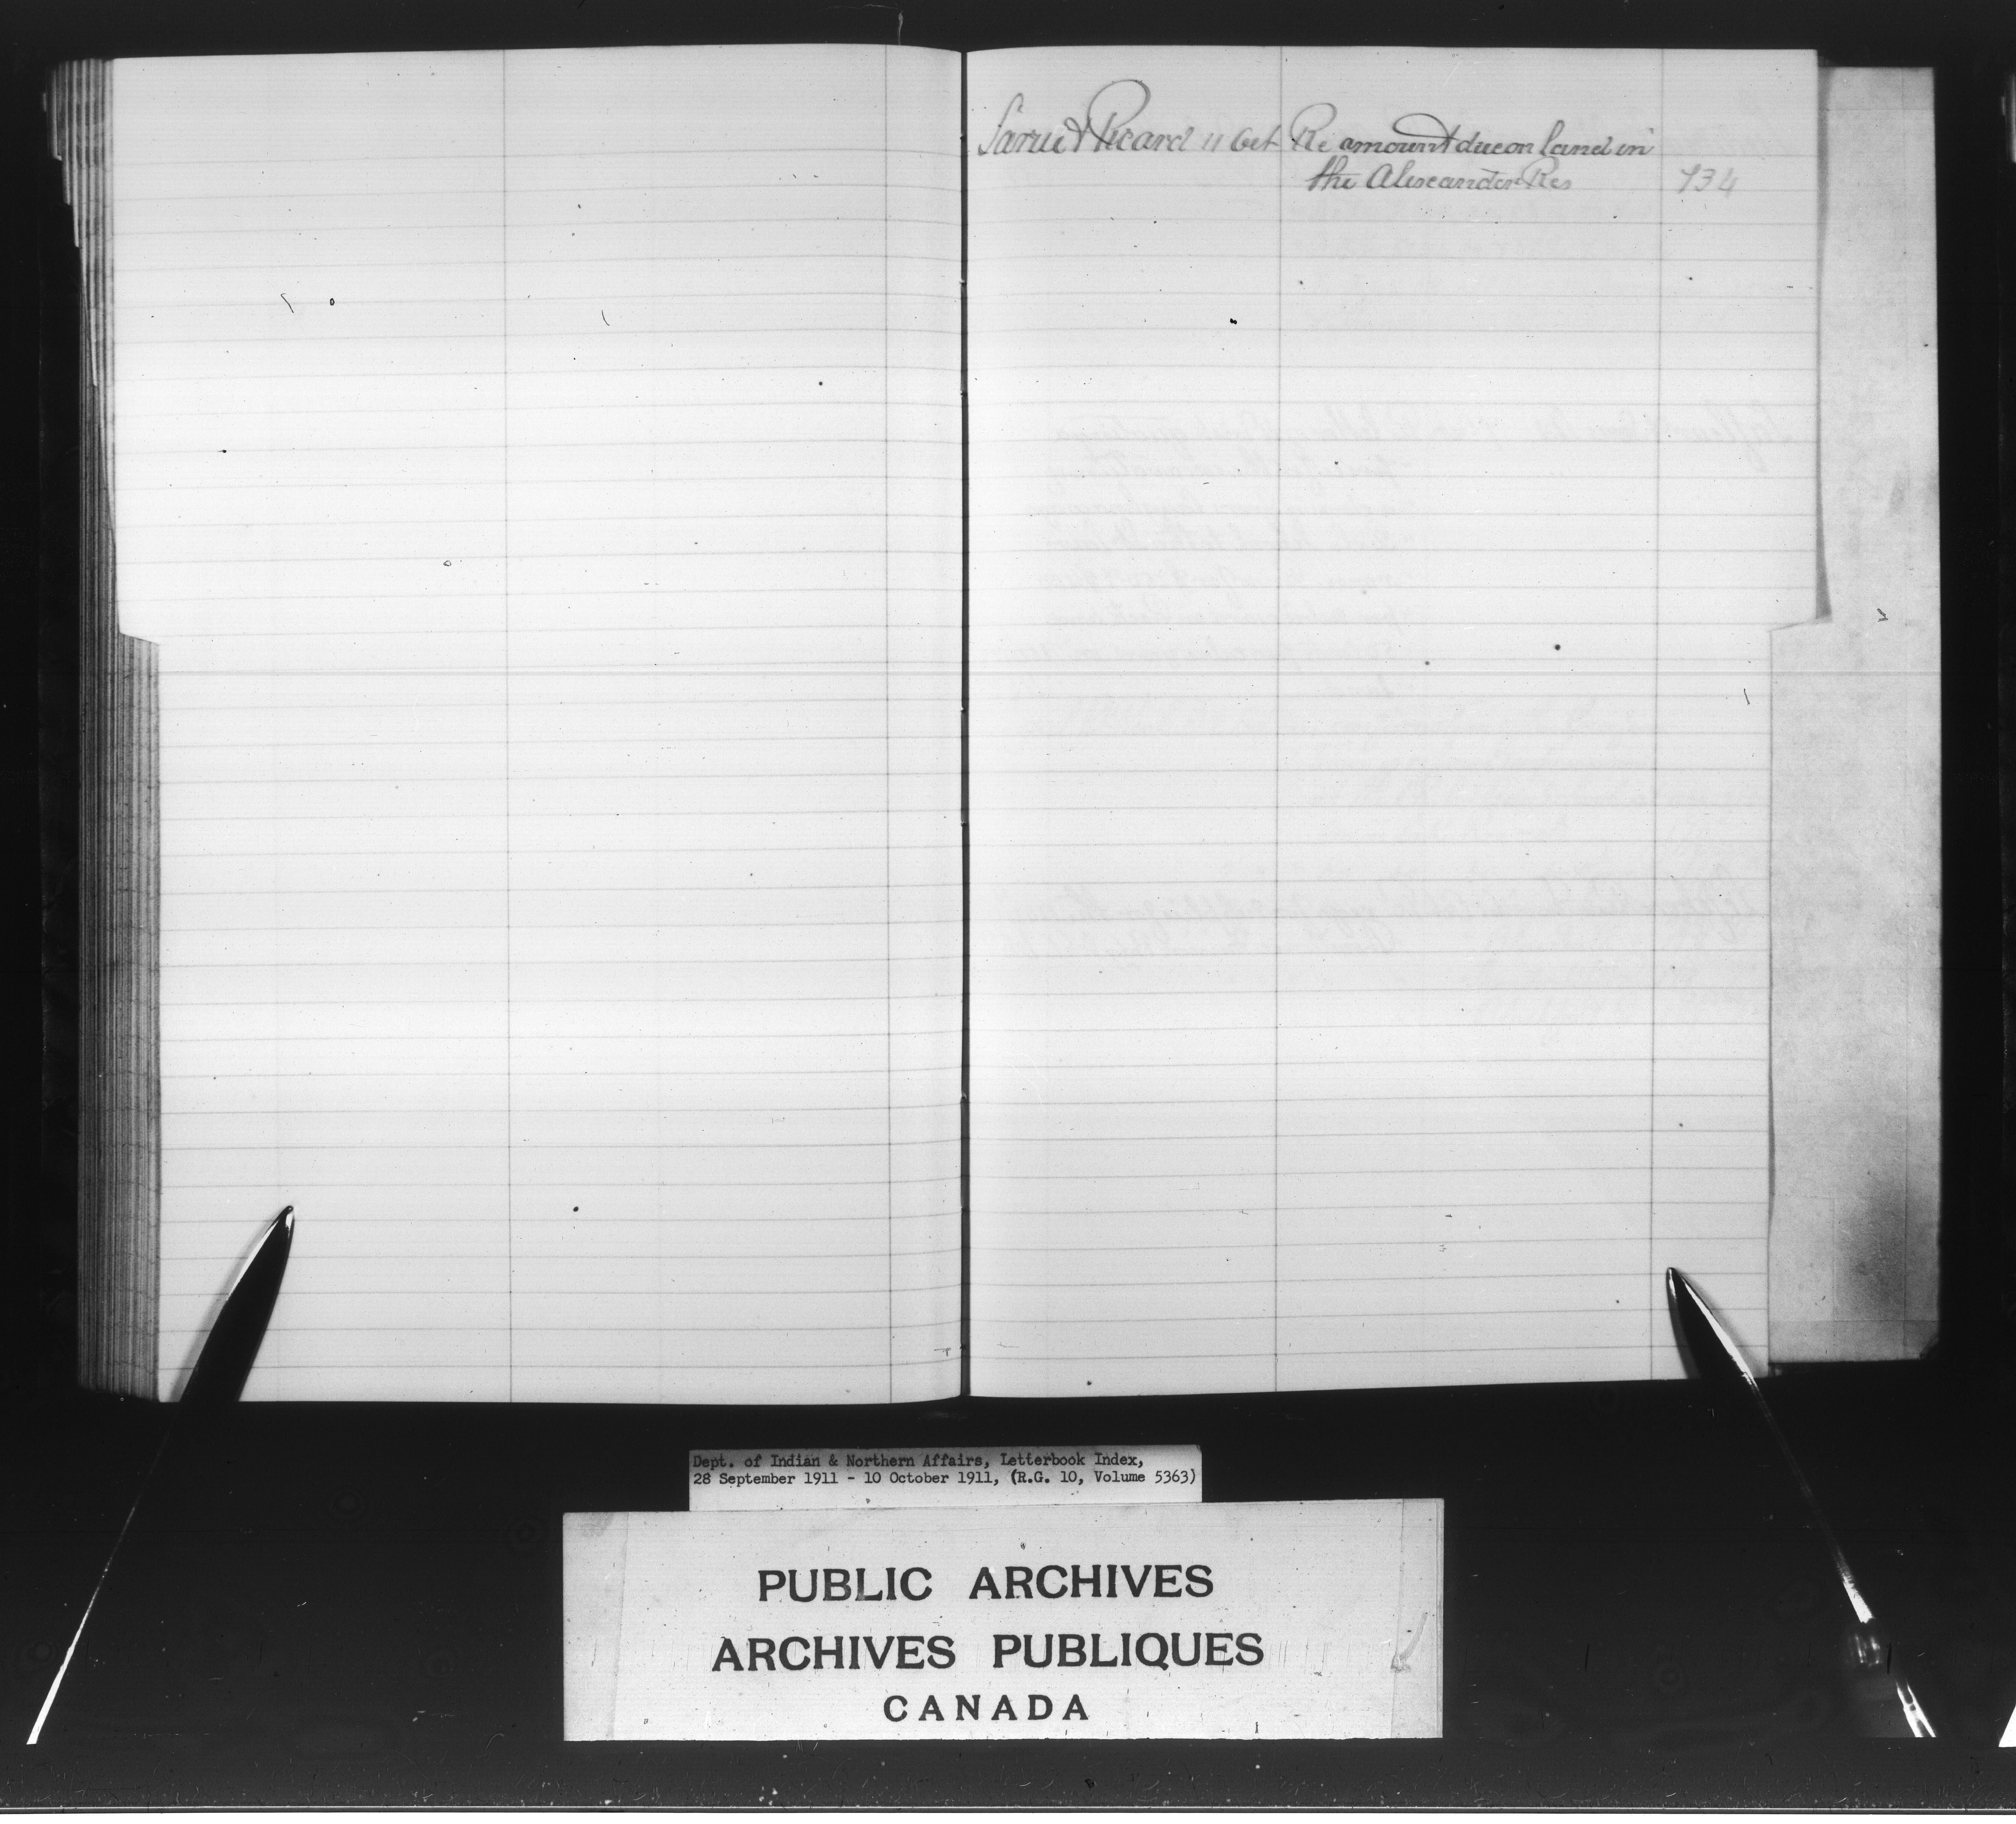 Larue & Picard 11 Oct Re amount due on land in
the Alexander Res 734
Dept. of Indian & Northern Affairs, Letterbook Index,
28 September 1911 - 10 October 1911, (R.G. 10, Volume 5363)
PUBLIC ARCHIVES
ARCHIVES PUBLIQUES
CANADA